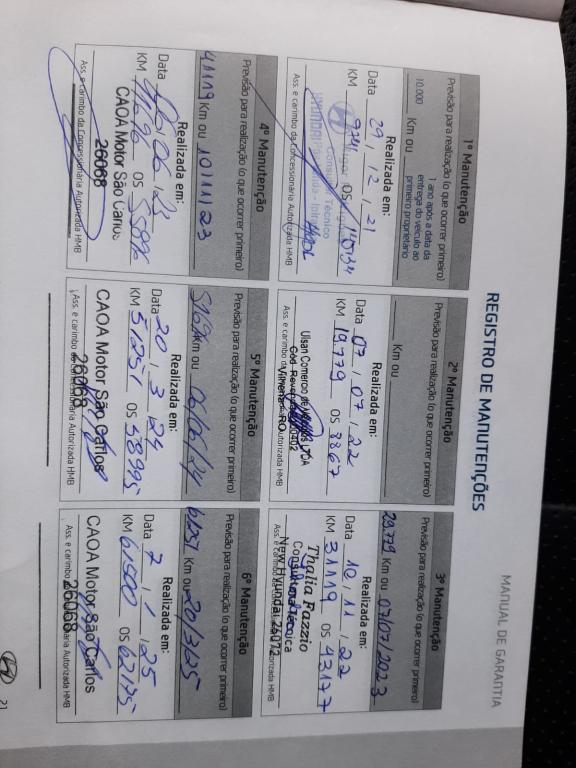 MANUAL DE GARANTIA
REGISTRO DE MANUTENÇÕES
1º Manutenção
Previsão para realização (o que ocorrer primeiro)
10.000 Km ou 1 ano após a data da entrega do veículo ao primeiro proprietário
Realizada em:
Data 29 / 12 / 21
KM OS
Consultor Técnico
Ass. e carimbo da Concessionária Autorizada HMB
2º Manutenção
Previsão para realização (o que ocorrer primeiro)
Km ou
Realizada em:
Data 07 / 07 / 22
KM 19.779 OS 8867
Ulsan Comercio de
Vilhena - RO
Ass. e carimbo da Concessionária Autorizada HMB
3º Manutenção
Previsão para realização (o que ocorrer primeiro)
29.779 Km ou 07/07/2023
Realizada em:
Data 10 / 11 / 22
KM 31119 OS 43177
Thalita Fazzio
Consultora Técnica
New Hyundai 26072
Ass. e carimbo da Concessionária Autorizada HMB
4º Manutenção
Previsão para realização (o que ocorrer primeiro)
41119 Km ou 10/11/23
Realizada em:
Data 16 / 06 / 23
KM OS
CAOA Motor São Carlos
26068
Ass. e carimbo da Concessionária Autorizada HMB
5º Manutenção
Previsão para realização (o que ocorrer primeiro)
Km ou
Realizada em:
Data 20 / 3 / 24
KM 51251 OS 58995
CAOA Motor São Carlos
26068
Ass. e carimbo da Concessionária Autorizada HMB
6º Manutenção
Previsão para realização (o que ocorrer primeiro)
61251 Km ou 20/3/25
Realizada em:
Data 7 / 1 / 25
KM 61500 OS 62175
CAOA Motor São Carlos
26068
Ass. e carimbo da Concessionária Autorizada HMB
21